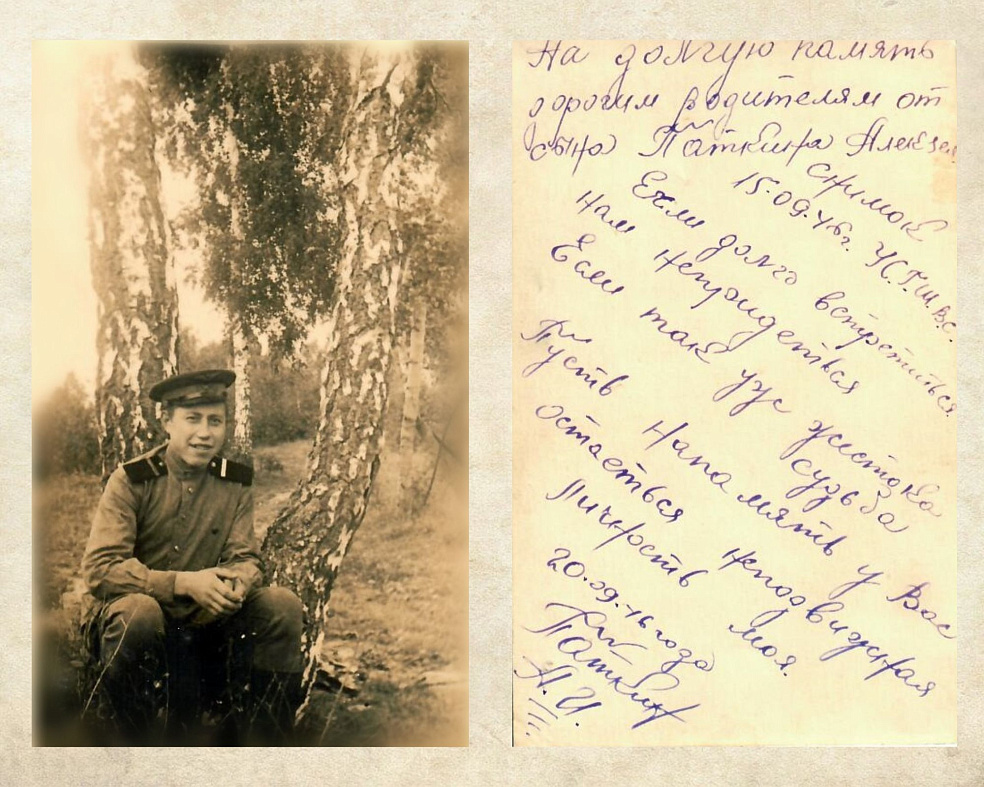 На долгую память
дорогим родителям от
сына Паткина Алексея
Снимок
15.09.46г. УС.Г.Ш.В.С.
Если долго встретиться
Нам непридеться
Если так уж жестока
судьба
Пусть напамять у Вас
остаеться неподвижная
Личность моя.
20.09.46 года
Паткин
А.И.